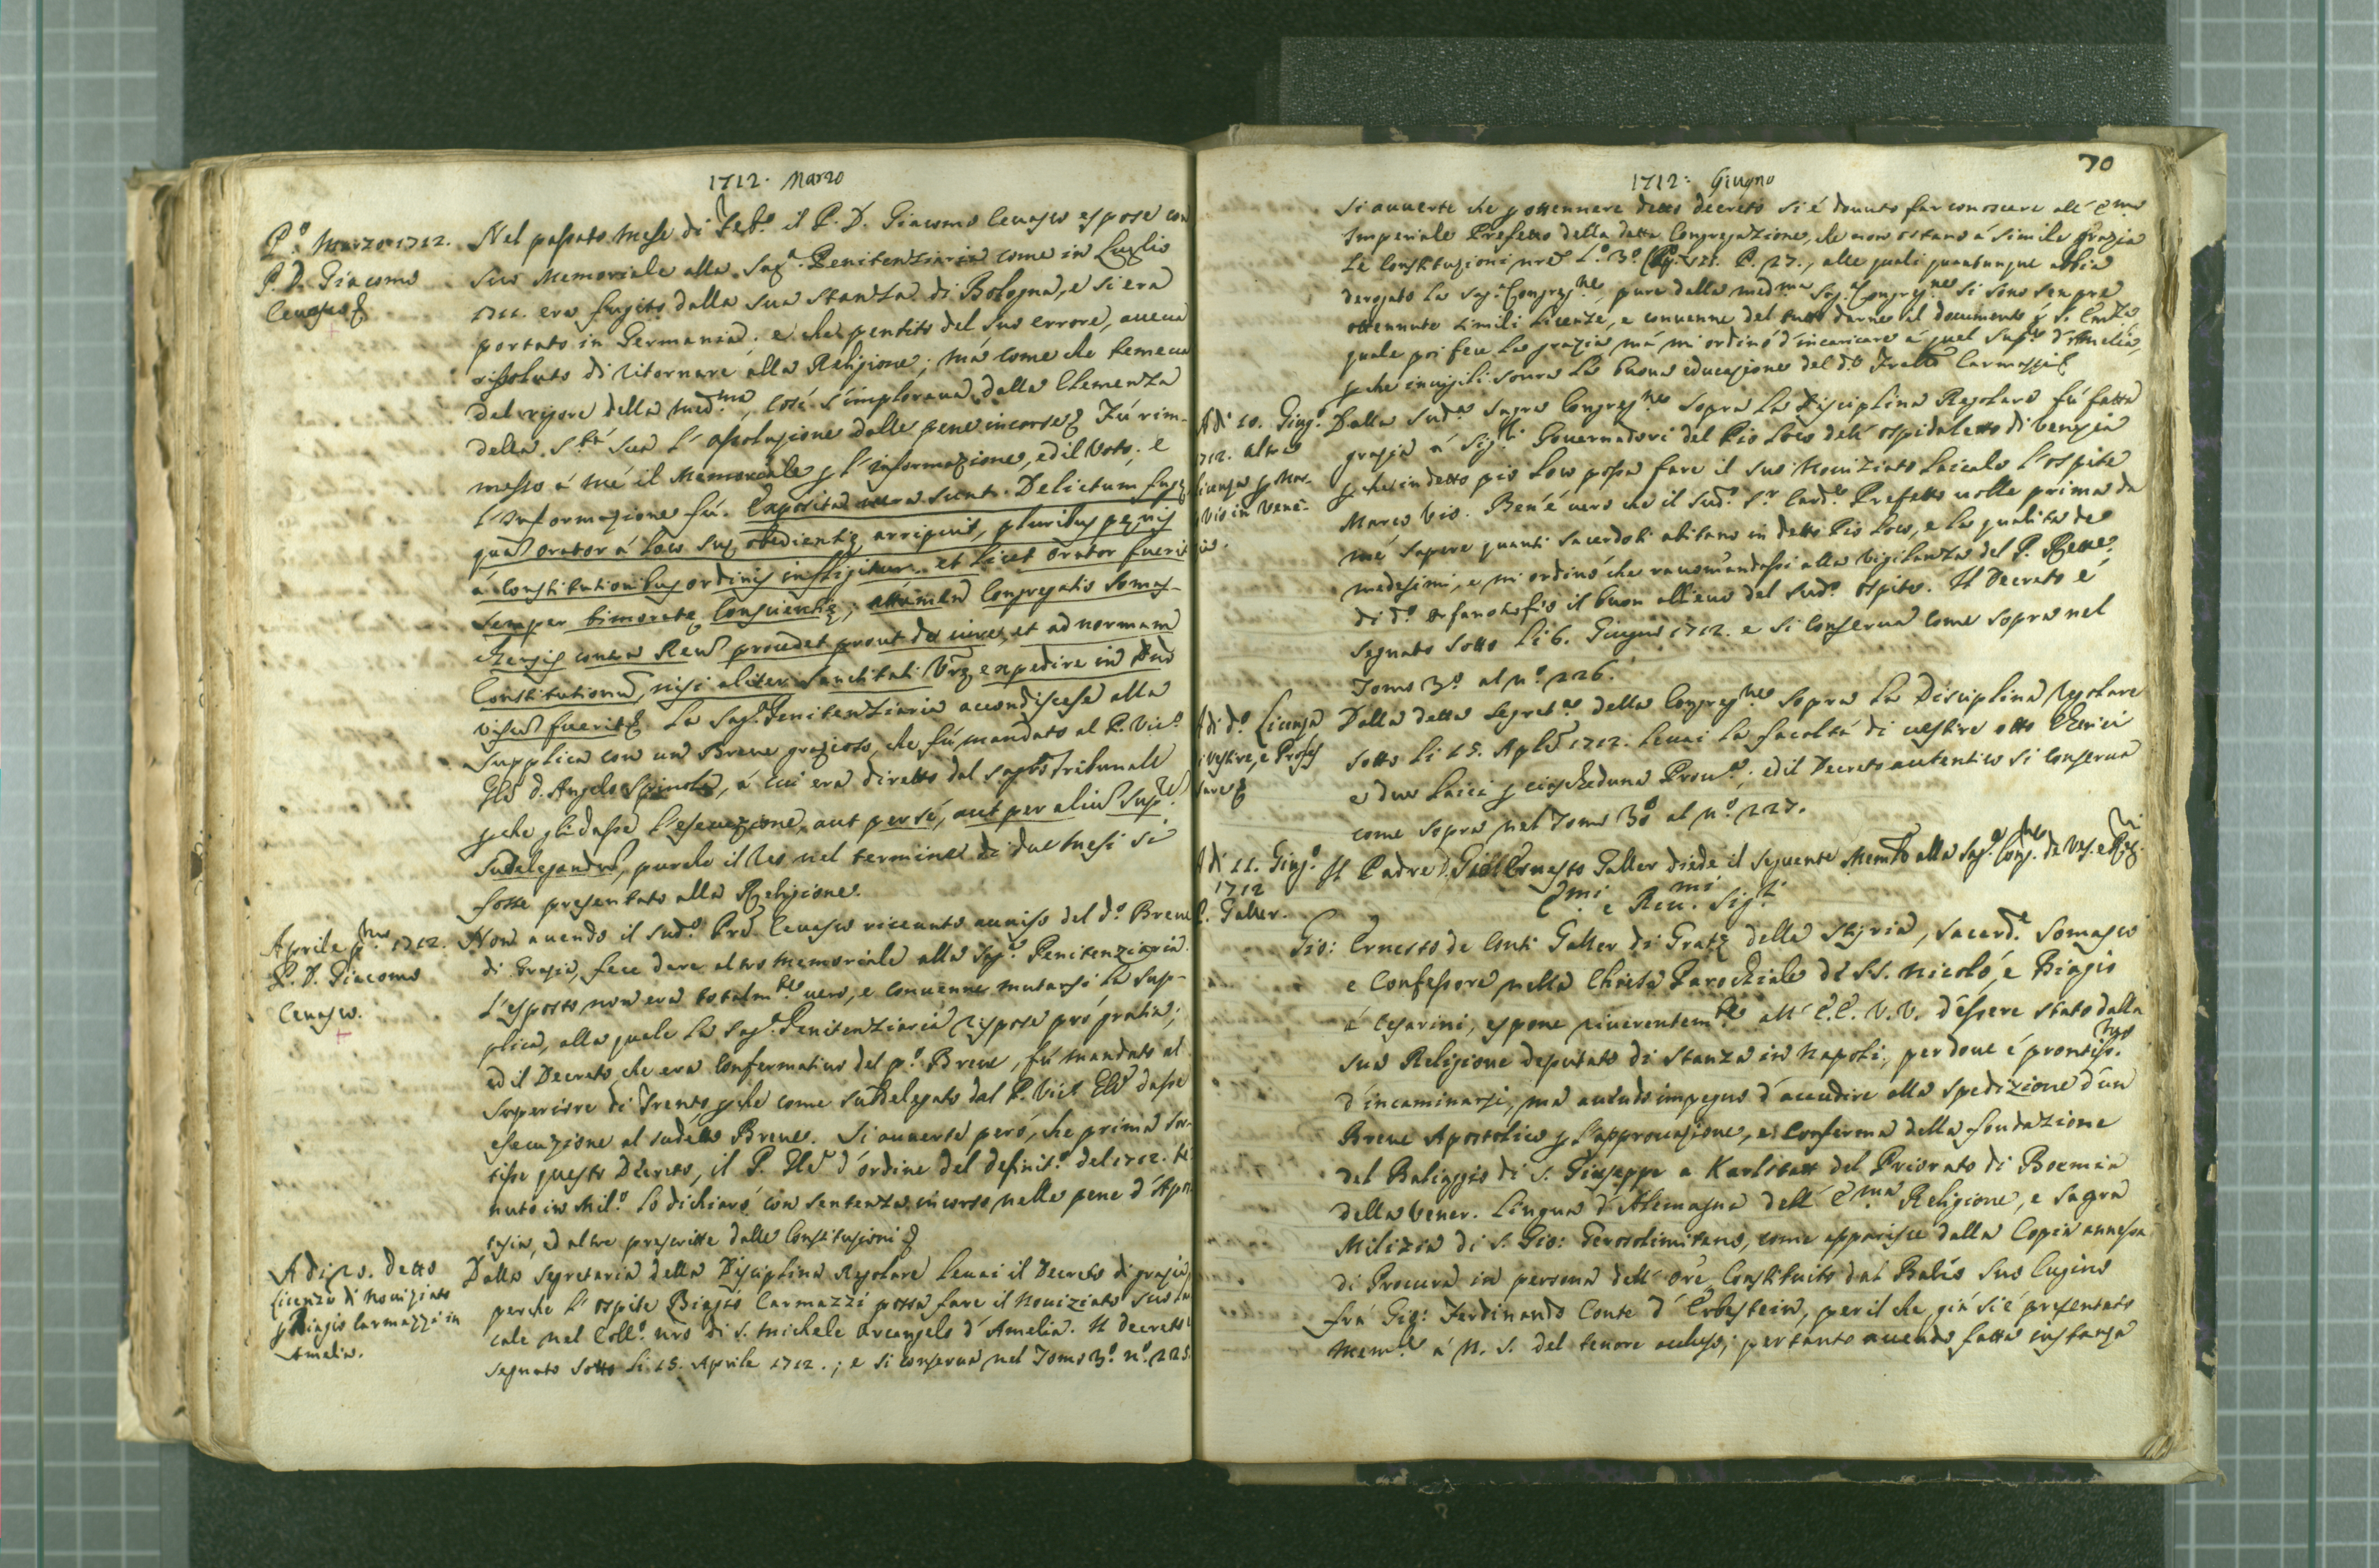 1712. Marzo
P.º Marzo 1712.
P. D. Giacomo
Cevasco
Nel passato mese di Feb.º il P. D. Giacomo Cevasco espose con
suo Memoriale alla Sag.ª Penitenziaria come in Luglio
1711. era fugito dalla sua stanza di Bologna, e si era
portato in Germania. e che pentito del suo errore, aveva
risoluto di ritornare alla Religione; mà come che temeva
del rigore della med.ma, così s'implorava dalla Clemenza
della S.tà Sua l'assoluzione dalle pene incorse Fù rim-
messo á mé il Memoriale p l'informazione, ed il Voto; e
l'informazione fù. Exposita vera sunt. Delictum fugę
quã orator á loco suę obedientię arripuit, pluribus pęnis
á Constitutionibus ordinis infligitur. et licet orator fuerit
semper timoratę Conscientię; attámen Congregatio Somas-
chensis contra Reũ procedet prout de iure, et ad normam
Constitutionũ, nisi aliter Sanctitati Vrę expedire in Dño
visũ fuerit La Sag.ª Penitenziaria accondiscese alla
supplica con un Breve grazioso, che fú mandato al P. Vic.º
Glẽ D. Angelo Spinola, á cui era diretto dal sagro Tribunale
pche gli dasse l'esecuzione, aut per sé, aut per aliũ Sup.re
Sudelegandũ, purche il Reo nel termine di due mesi si
fosse presentato alla Religione.
Aprile p.mo 1712.
P. D. Giacomo
Cevasco.
Non avendo il sud.º Prẽ Cevasco ricevuto avviso del d.º Breve
di Grazia, fece dare altro memoriale alla Sag.ª Penitenziaria.
L'esposto non era totalm.te vero, e convenne mutarsi la sup-
plica, alla quale la Sag.ª Penitenziaria rispose pró gratia;
ed il Decreto, che era Confermativo del p.º Breve, fú mandato al
Superiore di Trento, pche come suddelegato dal P. Vic.º Glẽ dasse
esecuzione al sudetto Breve. Si avverte però, che prima sor-
tisse questo Decreto, il P. Glẽ d'ordine del definit.º del 1712. te-
nuto in Mil.º lo dichiaró con sentenza incorso nelle pene d'Apo-
tasia, ed altre prescritte dalle Constituzioni
Adi 15. Detto
Licenza di Noviziato
p Biagio Carmazzi in
Amelia.
Dalla Segretaria della Disciplina Regolare levai il Decreto di grazia,
perche l'ospite Biagio Carmazzi possa fare il Noviziato suo lai-
cale nel Coll.º nrõ di S. Michele Arcangelo d'Amelia. Il decreto
segnato sotto li 15. Aprile 1712.; e si conserva nel Tomo 3.º nº. 225.
70
1712. Giugno
Si avverte che p ottennere detto decreto si è dovuto far conoscere all'E.mo
Imperiale Prefetto della detta Congregazione, che non ostano á simile Grazia
Le Constituzioni nrẽ L.º 3.º P. 27., alle quali quantunque abbia
derogato la Sag.ª Congreg.ne, pure dalla med.ma Sag.ª Congreg.ne si sono sempre
ottennute simili licenze, e convenne del tutto darne il documento p S. Em.za
quale poi fece la grazia má mi ordinó d'incaricare á quel Sup.re d'Amelia,
pche invigili sovra la buona educazione del d.º Fratẽ Carmazzi
Adi 10. Giug.º
712. altra
icenza p Mar-
Vio in Vene-
ia.
Dalla sud.ª Sagra Congreg.ne sopra la Disciplina Regolare fú fatta
grazia á Sig.ri Governadori del Pio Loco dell'ospidaletto di Venezia
pche in detto pio loco possa fare il suo Noviziato Laicale l'ospite
Marco Vio. Ben'é vero che il sud.º S.r Card.e Prefetto volle prima da
mé sapere quanti Sacerdoti abitano in detto Pio Loco, e la qualità de
medesimi, e mi ordinó che raccomandassi alla vigilanza del P. Rettore
di d.º orfanotrofio il buon allievo del sud.º ospite. Il Decreto é
segnato sotto li 6. Giugno 1712. e si conserva come sopra nel
Tomo 3.º al nº. 226.
Adi d.º Licenza
vestire, e Profes
sare
Dalla detta Segret.ª della Congreg.ne sopra la Disciplina Regolare
sotto li 15. Aplẽ 1712. levai la facoltà di vestire otto Chierici
e due Laici p ciascheduna Prov.ª; ed il Decreto autentico si conserva
come sopra nel Tomo 3.º al nº. 227.
Adi 11. Giug.º
1712
P. Galler.
Il Padre D. Gio: Ernesto Galler diede il seguente Mem.le alla Sag.ª Cong.ne de Ves. e Reg.
E.mi e Rev.mi Sig.ri
Gio: Ernesto de Conti Galler di Gratz della Styria, Sacerd.e Somasco
e Confessore nella Chiesa Parochiale di S.S. Nicoló, e Biagio
á Cesarini, espone riverentem.te all' E.E. V.V. d'essere stato dalla
sua Religione deputato di Stanza in Napoli, per dove é prontiss.mo
d'incaminarsi, ma avendo impegno d'accudire alla spedizione d'un
Breve Apostolico p l'approvazione, e Conferma della fondazione
del Baliaggio di S. Giuseppe a Karlstatt del Priorato di Boemia
della Vener. Lingua d'Alemagna dell' E.ma Religione, e Sagra
Milizia di S. Gio: Gerosolimitano, come apparisce dalla Copia annessa
di Procura in persona dell' Orẽ Constituito dal Balio suo Cugino
frá Gio: Ferdinando Conte d'Erbestein, per il che giá si é presentato
Mem.le á N. S. del tenore accluso; pertanto avendo fatta instanza